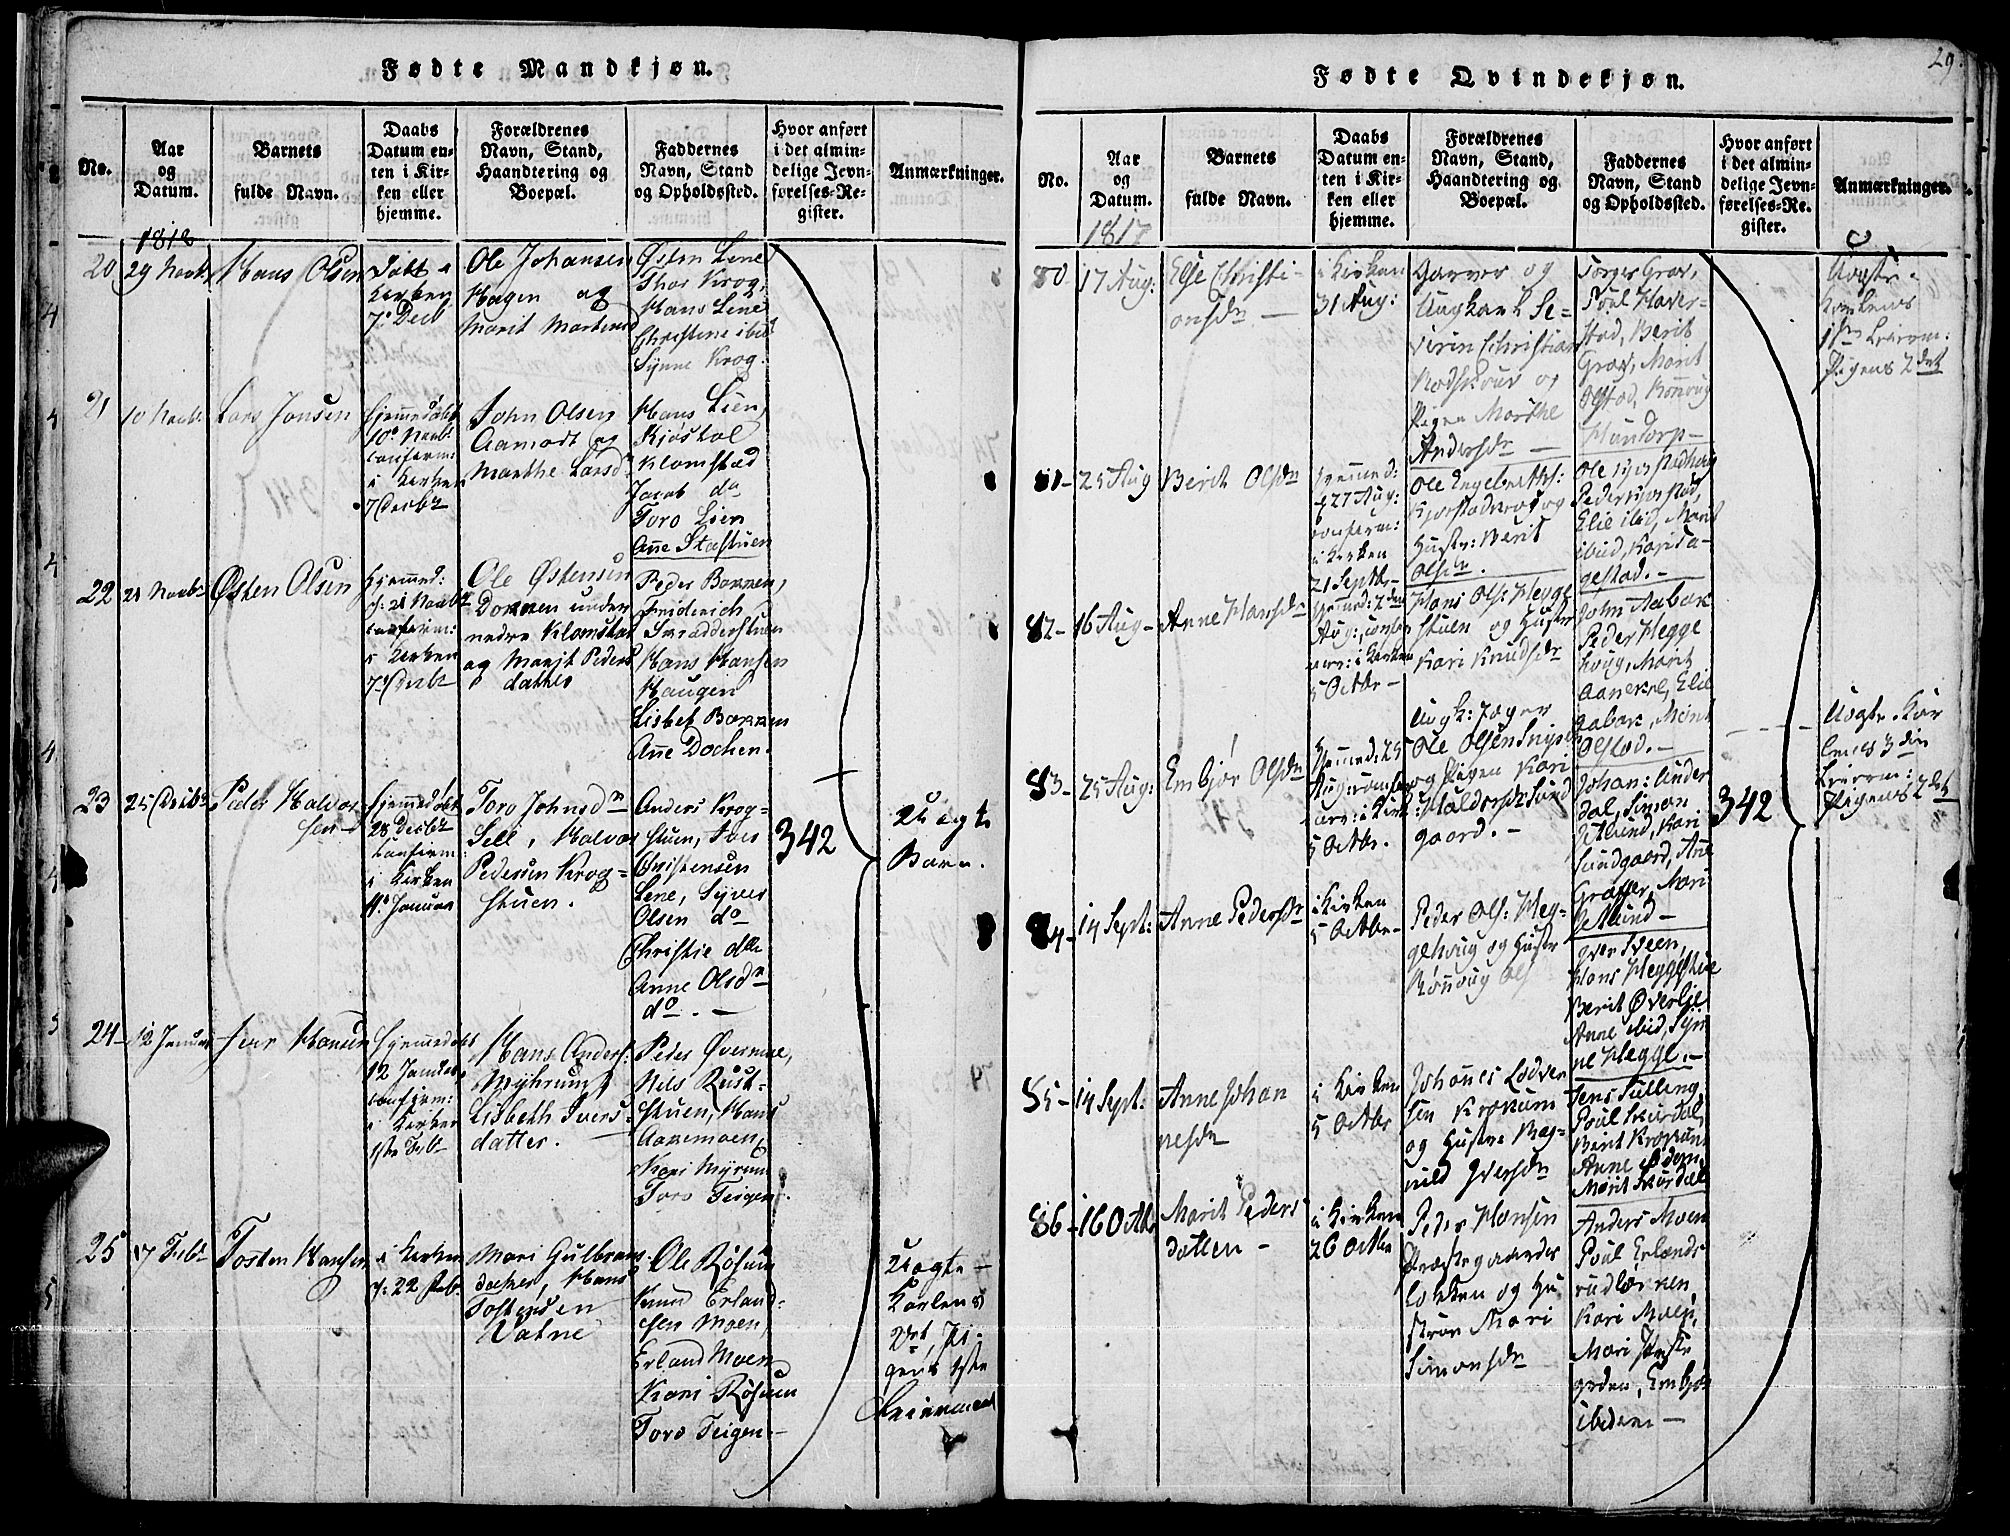 Fødte Mandkjøn.
No.
Aar
og
Datum.
Barnets
fulde Navn.
Daabs
Datum en-
ten i Kir-
ken eller
hjemme.
Forældrenes
Navn, Stand,
Haandtering og
Boepæl.
Faddernes
Navn, Stand
og Opholdssted.
Hvor anført
i det almin-
delige Jevn-
førelses-Re-
gister.
Anmærkninger.
1818
20
29 Novbr
Hans Olsen
Døbt i
Kirken
7de Decb
Ole Johansen
Hagen og
Marit Mortensd
Østen Lene
Thor Krog,
Hans Lene
Christene ibid
Synne Krog.
21
10 Novbr
Lars Jonsen
hjemmedøbt
10de Novbr
confirm:
i Kirken
7 Decbr
John Olsen
Aamodt og
Marthe Larsd
Hans Lien,
Kjøstol
Klomstad
Jacob do
Toro Lien
Ane Stastuen
22
21 Novbr
Østen Olsen
Hjemmed:
d: 21 Novbr
confirm:
i Kirken
7de Decbr
Ole Østensen
Dokken under
nedre Klomstad
og Marit Peders
datter
Peder Bakken,
Friderich
Skrædderstuen
Hans Hansen
Haugen
Lisbet Bakken
Ane Dochen.
23
25 Decbr
Peder Halvor
sen
hjemmedøbt
28 Decbr
confirm
i Kirken
11te Januar
Toro Johnsdr
Sell, Halvor
Pedersen Krog=
stuen.
Anders Krog=
stuen, Iver
Christensen
Lene, Syver
Olsen do
Christie do
Anne Olsdr
do. —
342
Uægte
Barn.
24
12 Januar
Iver Hansen
hjemmedøbt
12 Januar
confirm:
i Kirken
1ste Feb
Hans Anders:
Myhrum
Lisbeth Ivers
datter.
Peder Øvermoe,
Nils Rust-
stuen, Hans
Aasemoen,
Kari Myrum
Toro Teigen.
25
17 Febr
Tosten Hansen
i Kirken
d: 22 Feb.
Mari Gulbrans
Dochen, Hans
Tostensen
Vatne
Ole Røsum
Knud Erland=
sen Moen,
Erland Moen
Kari Røsum
Toro Teigen—
Uægte—
Karlens
2det, Pi-
gens 1ste
Leiermaal
29.
Fødte Qvindekjøn.
No.
Aar
og
Datum.
Barnets
fulde Navn.
Daabs
Datum en-
ten i Kir-
ken eller
hjemme.
Forældrenes
Navn, Stand,
Haandtering og
Boepæl.
Faddernes
Navn, Stand
og Opholdssted.
Hvor anført
i det almin-
delige Jevn-
førelses-Re-
gister.
Anmærkninger.
1817
80
17 Aug:
Else Christi-
ansdr —
i Kirken
31 Aug:
Garver og
Ungkarl Se-
verin Christian
Rodskour og
Pigen Marthe
Andersdr —
Torger Grav,
Poul Haver-
stad, Berit
Grav, Marit
Olstad, Rønnaug
Hundorp—
Uægte.
Karlens
1ste Leierm:
Pigens 2det
81-
25 Aug
Berit Olsdr
Hjemmed:
d 27 Aug:
confirm:
i Kirken
21 Septbr—
Ole Engebrets:
Kjorstad og
Hustr: Berit
Olsdr.
Peder
Elie ibid, Marit
ibid, Kari Da-
gestad.—
82-
16 Aug—
Anne Hansdr
5 Octbr—
Hans Ols: Hegge
stuen og Hustr
Kari Knudsdr
John Aabak
Peder Hegge
houg, Marit
Elie
Aabak, Marit
Olstad.—
83-
25 Aug:
Embjør Olsdr
Hjemmed: 25
Aug:
i Kirk
5 Octbr.
Ungk: Jæger
Ole Olsen
og Pigen Kari
Haldorsdr Sund
gaard.—
Johan: Under
dal, Simon
Kari
Sundgaard, Ane
Graffer, Mari
342
Uægte. Kar
lens 3die
Leierm:
Pigens 2det
84-
14 Sept:
Anne Pedersdr
i Kirken
5 Octbr—
Peder Ols: Heg-
gehoug og Hustr
Rønnoug Ols
Iver Sveen,
Hans Heggestue
Berit Øverlie
Anne ibid, Syn
ne Hegge.—
85-
14 Sept:
Anne Johan
nesdr
i Kirken
5 Octbr
Johanes Lodven
sen Krokum
og Hustr: Rag-
nild Iversdr
Jens Selling
Poul Skurdal
Berit Krokum
Anne ibidem,
Marit Skurdal
86-
16 Octbr
Marit Peders
datter—
i Kirken
26 Octbr
Peder Hansen
Præstegaards
Lokken og Hu
strue Mari
Simonsdr
Anders Moen
Poul Erlands
Kari Moen,
Mari Præste
garden, Embjør
ibidem—